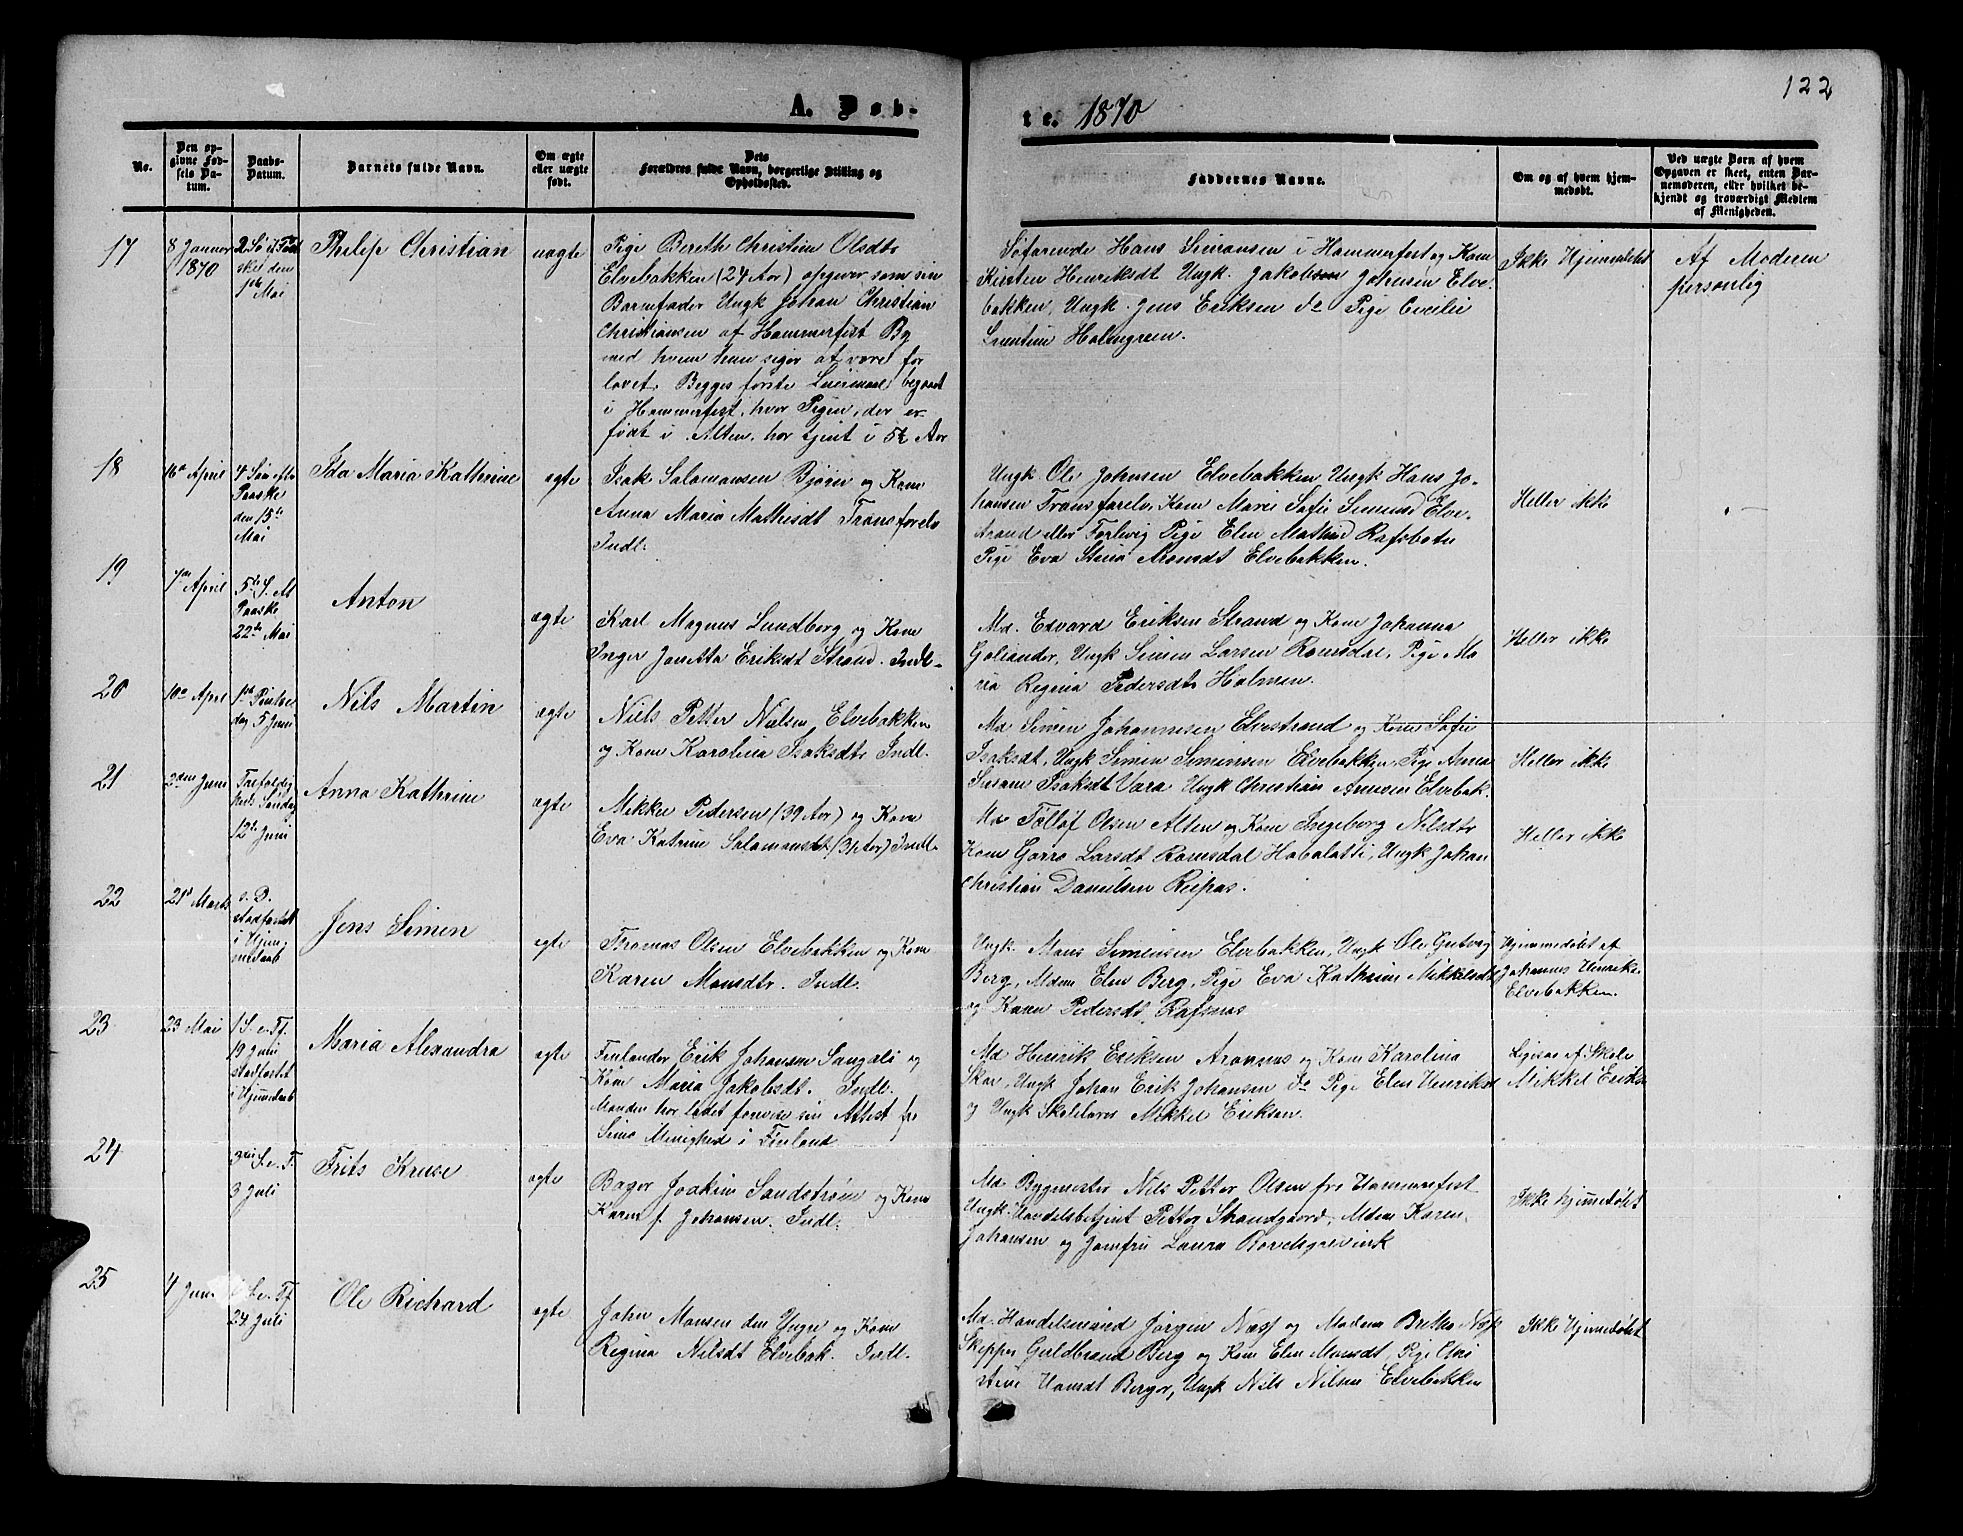 122
A. Døb-
te. 1870
No.
Den op-
givne Fød-
sels Da-
tum.
Daabs-
Datum.
Barnets fulde Navn.
Om ægte
eller uægte
født.
Dets
Forældres fulde Navn, borgerlige Stilling og
Opholdssted.
Faddernes Navne.
Om og af hvem hjem-
medøbt.
Ved uægte Børn af hvem
Opgaven er skeet, enten Bar-
nemoderen, eller hvilket be-
kjendt og troværdigt Medlem
af Menigheden.
17
8 Januar
1870
den
Mai
Philip Christian
uægte
Pige Bereth Christine Olsdtr
Elvebakken (24 Aar) opgiver som sin
Barnefader Ungk Johan Christian
Christiansen af Hammerfest By
med hvem hun siger at være for
lovet. Begges første Leiermaal begaaet
i Hammerfest, hvor Pigen, der er
født i Alten, har tjent i 5½ Aar
Søfarende Hans Simonsen i Hammerfest og Kone
Kirsten Henriksdt Ungk. Jakob Johnsen Elve-
bakken, Ungk. Jens Eriksen do Pige Cecilie
Holmgreen.
Ikke Hjemmedøbt
Af Moderen
personlig
18
16 April
4 Søn efter
Paaske
den 15de
Mai
Ida Maria Kathrine
ægte
Isak Salamonsen Bjørn og Kone
Anna Maria Mathisdt Transfarelv
Indl.
Ungk Ole Johnsen Elvebakken, Ungk Hans Jo-
hansen Transfarelv, Kone Marie Sofie Simonsd Elve-
strand eller Pige Elen Mathisd Rafsbotn
Pige Eva Stina Aronsdt Elvebakken.
Heller ikke
19
7de April
5te S. e.
Paaske
22de Mai
Anton
ægte
Karl Magnus Lundborg og Kone
Inger Janetta Eriksdt Strand. Indl.
Md. Edvard Eriksen Strand og Kone Johanna
Ungk Simen Larsen Romsdal, Pige Ma
ria Regina Pedersdtr Holmen.
Heller ikke
20
10de April
1ste Pintse
dag 5 Juni
Nils Martin
ægte
Niels Petter Nielsen Elvebakken
og Kone Karolina Isaksdtr Indl.
Md Simen Johannesen Elvestrand og Kone Sofie
Isaksdt, Ungk Simon Simonsen Elvebakken, Pige Anna
Susanna Isaksdt Vara Ungk Christian Aronsen Elvebak.
Heller ikke
21
2den Juni
Trefoldig
heds Søndag
12te Juni
Anna Kathrine
ægte
Mikkel Pedersen (39 Aar) og Kone
Eva Katrine Salamonsdt (31 Aar) Indl.
Md Tølløf Olsen Alten og Kone Ingeborg Nilsdtr
Kone Larsdt Romsdal Ungk Johan
Christian Danielsen Reipas.
Heller ikke
22
21de Marts
s. D.
stadfæstet
i Hjem-
medaab
Jens Simen
ægte
Thomas Olsen Elvebakken og Kone
Karen Monsdtr. Indl.
Ungk. Mons Simensen Elvebakken, Ungk Ole
Berg, Mdme Elen Berg, Pige Eva Kathrine Mikkelsdt
og Karen Pedersdt, Rafsnæs
Hjemmedøbt af
Johannes Henriks
Elvebakken.
23
23 Mai
1 S. e. Tf.
19 Juni
stadfæstet
i Hjemmedaab
Maria Alexandra
ægte
Finlænder Erik Johansen og
Kone Maria Jakobsdt. Indl.
Manden har ladet forevise sin Attest fra
Simo Menighed i Finland
Md Henrik Eriksen Aronnæs og Kone Karolina
Ungk Johan Erik Johansen do Pige Elen Henriksd
og Ungk Skolelærer Mikkel Eriksen.
Ligesaa af Skolel
Mikkel Eriks
24
3die S. e. T.
3 Juli
Frits Kruse
ægte
Bager Joakim Sandstrøm og Kone
Karen f. Johansen. Indl.
Md Bygmester Nils Petter Olsen fra Hammerfest
Ungk. Handelsbetjent Petter Strandgaard, Mdme Karen
Johansen og Jomfru Laura Bordevick
Ikke hjemmedøbt
25
4 Juni
S. e. Tf
24 Juli
Ole Richard
ægte
John Monsen den Yngre og Kone
Regina Nilsdt Elvebak. Indl.
Md. Handelsmand Jørgen Næss og Madam Brithe
Skipper Guldbrand Berg og Kone Elen Monsdt, Pige
Hansdt Berger, Ungk Nils Nilsen Elvebakken
Ikke Hjemmedøbt